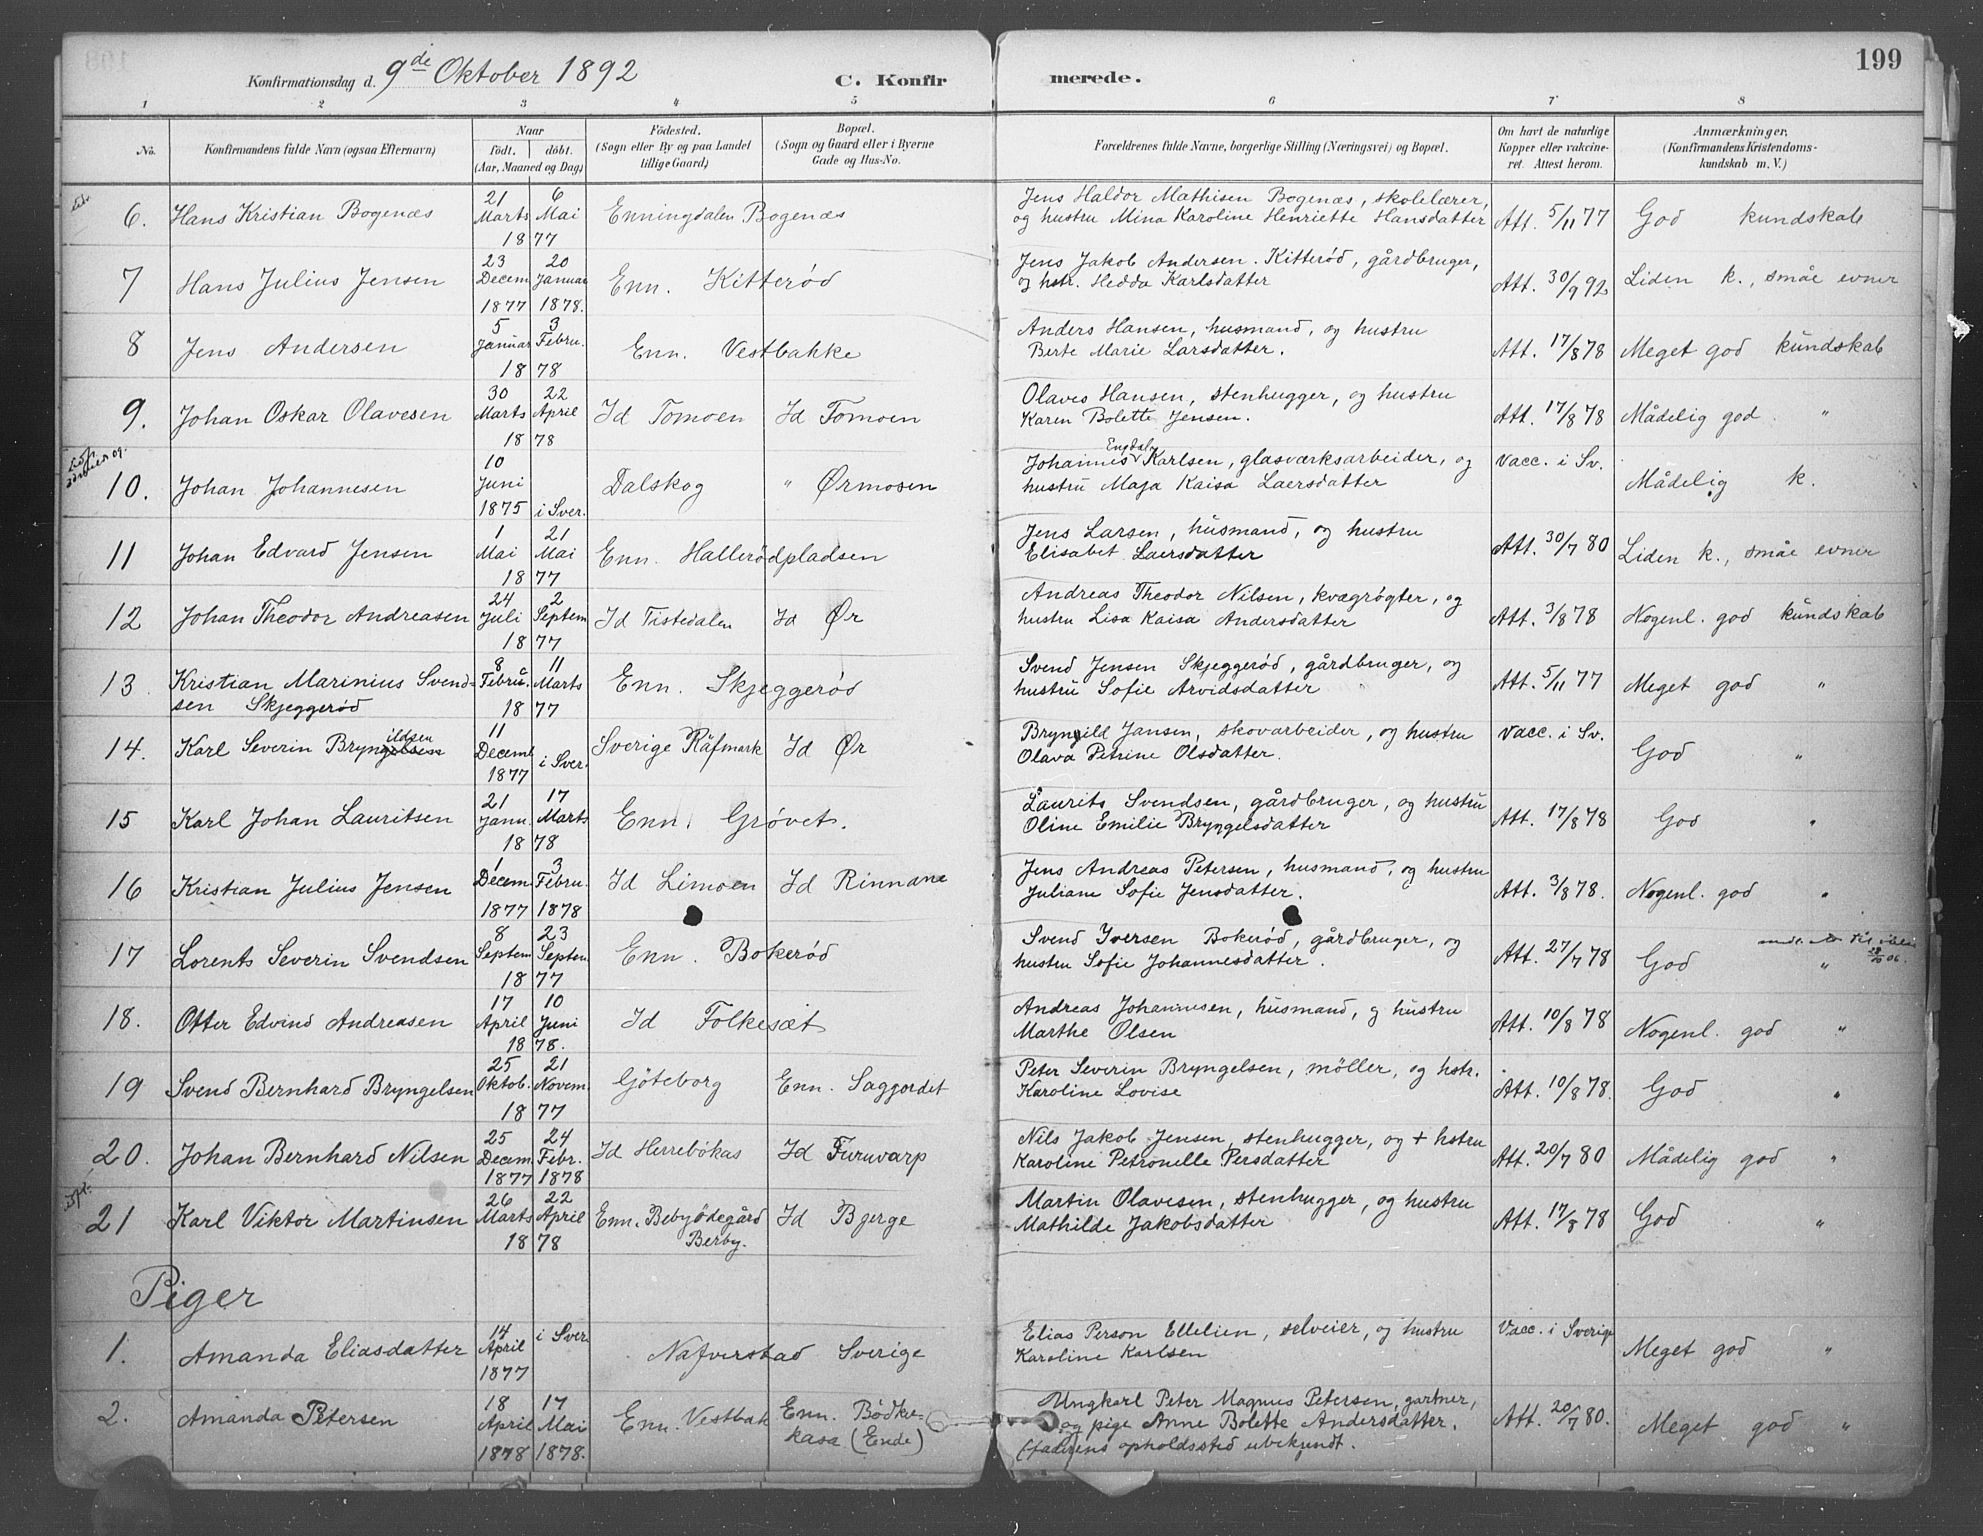 199
Konfirmationsdag d. 9de Oktober 1892 C. Konfirmerede.
1 2 3 4 5 6 7 8
No. Konfirmandens fulde Navn (ogsaa Efternavn) Naar født. døbt. (Aar, Maaned og Dag) Fødested. (Sogn eller By og paa Landet tillige Gaard) Bopæl. (Sogn og Gaard eller i Byerne Gade og Hus-No. Forældrenes fulde Navne, borgerlige Stilling (Næringsvei) og Bopæl. Om havt de naturlige Kopper eller vakcineret. Attest herom. Anmærkninger. (Konfirmandens Kristendomskundskab m. V.)
6. Hans Kristian Bogenæs 21 Marts 6 Mai 1877 Enningdalen Bogenæs Jens Haldor Mathisen Bogenæs, skolelærer, og hustru Mina Karoline Henriette Hansdatter Att. 5/11 77 God kundskab
7 Hans Julius Jensen 23 Decem 1877 20 Januar 1878. Enn. Kitterød Jens Jakob Andersen Kitterød, gårdbruger, og hstr. Hedda Karlsdatter Att. 30/9 92 Liden k., småe evner
8 Jens Andersen 5 Januar 3 Febru. 1878 Enn. Vestbakke Anders Hansen, husmand, og hustru Berte Marie Larsdatter. Att. 17/8 78 Meget god kundskab
9. Johan Oskar Olavesen 30 Marts 22 April 1878 Id Tomoen Id Tomoen Olaves Hansen, stenhugger, og hustru Karen Bolette Jensen. Att. 17/8 78 Mådelig god "
10. Johan Johannesen 10 Juni 1875 i Sver. Dalskog " Ørmosen Johannes Engdal Karlsen, glasværksarbeider, og hustru Maja Kaisa Laersdatter Vacc. i Sv. Mådelig k.
11 Johan Edvard Jensen 1 Mai 21 Mai 1877 Enn. Hallerødpladsen Jens Larsen, husmand, og hustru Elisabet Laersdatter Att. 30/7 80 Liden k., småe evner
12 Johan Theodor Andreasen 24 Juli 2 Septem 1877 Id Tistedalen Id Ør Andreas Theodor Nilsen, kvægrøgter, og hustru Lisa Kaisa Andersdatter Att. 3/8 78 Nogenl. god kundskab
13. Kristian Marinius Svendsen Skjeggerød 8 Febru. 11 Marts 1877 Enn. Skjeggerød Svend Jensen Skjeggerød, gårdbruger, og hustru Sofie Arvidsdatter Att. 5/11 77 Meget god "
14. Karl Severin Bryngelsen ildsen 11 Decemb 1877 i Sver. Sverige Räfmark Id Ør Bryngild Jansen, skovarbeider, og hustru Olava Petrine Olsdatter. Vacc. i Sv. God "
15 Karl Johan Lauritsen 21 Janu. 17 Marts 1878 Enn. Grøvet. Laurits Svendsen, gårdbruger, og hustru Oline Emilie Bryngelsdatter Att. 17/8 78 God "
16 Kristian Julius Jensen 1 Decem. 1877 3 Febru. 1878 Id Limoen Id Rinnane Jens Andreas Petersen, husmand, og hustru Juliane Sofie Jensdatter. Att. 3/8 78. Nogenl. god "
17 Lorents Severin Svendsen 8 Septem 23 Septem 1877 Enn. Bokerød Svend Iversen Bokerød, gårdbruger, og hustru Sofie Johannesdatter. Att. 27/7 78 God "
18. Otter Edvind Andreasen 17 April 10 Juni 1878. Id Folkesæt Andreas Johannesen, husmand, g hustru Marthe Olsen Att. 10/8 78 Nogenl. god "
19 Svend Bernhard Bryngelsen 25 Oktob. 21 Novem. 1877 Göteborg Enn. Saggordet Peter Severin Bryngelsen, möller, og hstr. Karoline Lovise Att. 10/8 78. God "
20. Johan Bernhard Nilsen 25 Decem. 1877 24 Febr. 1878 Id Herrebökas Id Furuvarp Nils Jakob Jensen, stenhugger, og + hstru Karoline Petronelle Persdatter Att. 20/7 80 Mådelig god "
21 Karl Viktor Martinsen 26 Marts 22 April 1878 Enn. Bebyödegård Berby. Id Bjerge Martin Olavesen, stenhugger, og hustru Mathilde Jakobsdatter Att. 17/8 78 God "
Piger
1. Amanda Eliasdatter 14 April 1877 i Sver Nafverstad Sverige Elias Person Ellelien, selveier, og hustru Karoline Karlsen Vacc. i Sverige Meget god "
2. Amanda Petersen 18 April 1878 17 Mai 1878. Enn. Vestbak Enn. Bödkekasa (Ende) Ungkarl Peter Magnus Petersen, gartner, og pige Anne Bolette Andersdatter. (faderens opholdssted ubekjendt. Att. 20/7 80. Meget god "